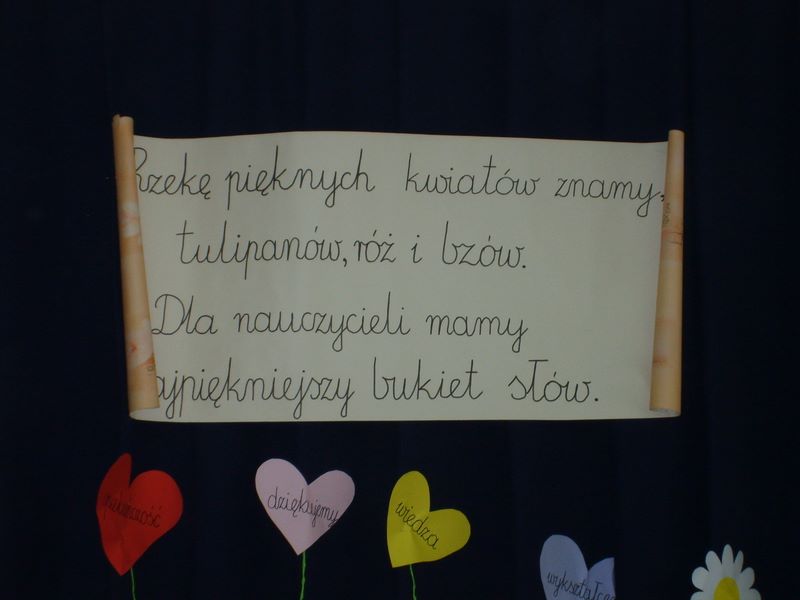 Rzekę pięknych kwiatów znamy,
tulipanów, róż i bzów.
Dla nauczycieli mamy
ajpiękniejszy bukiet słów.
dziękujemy
wiedza